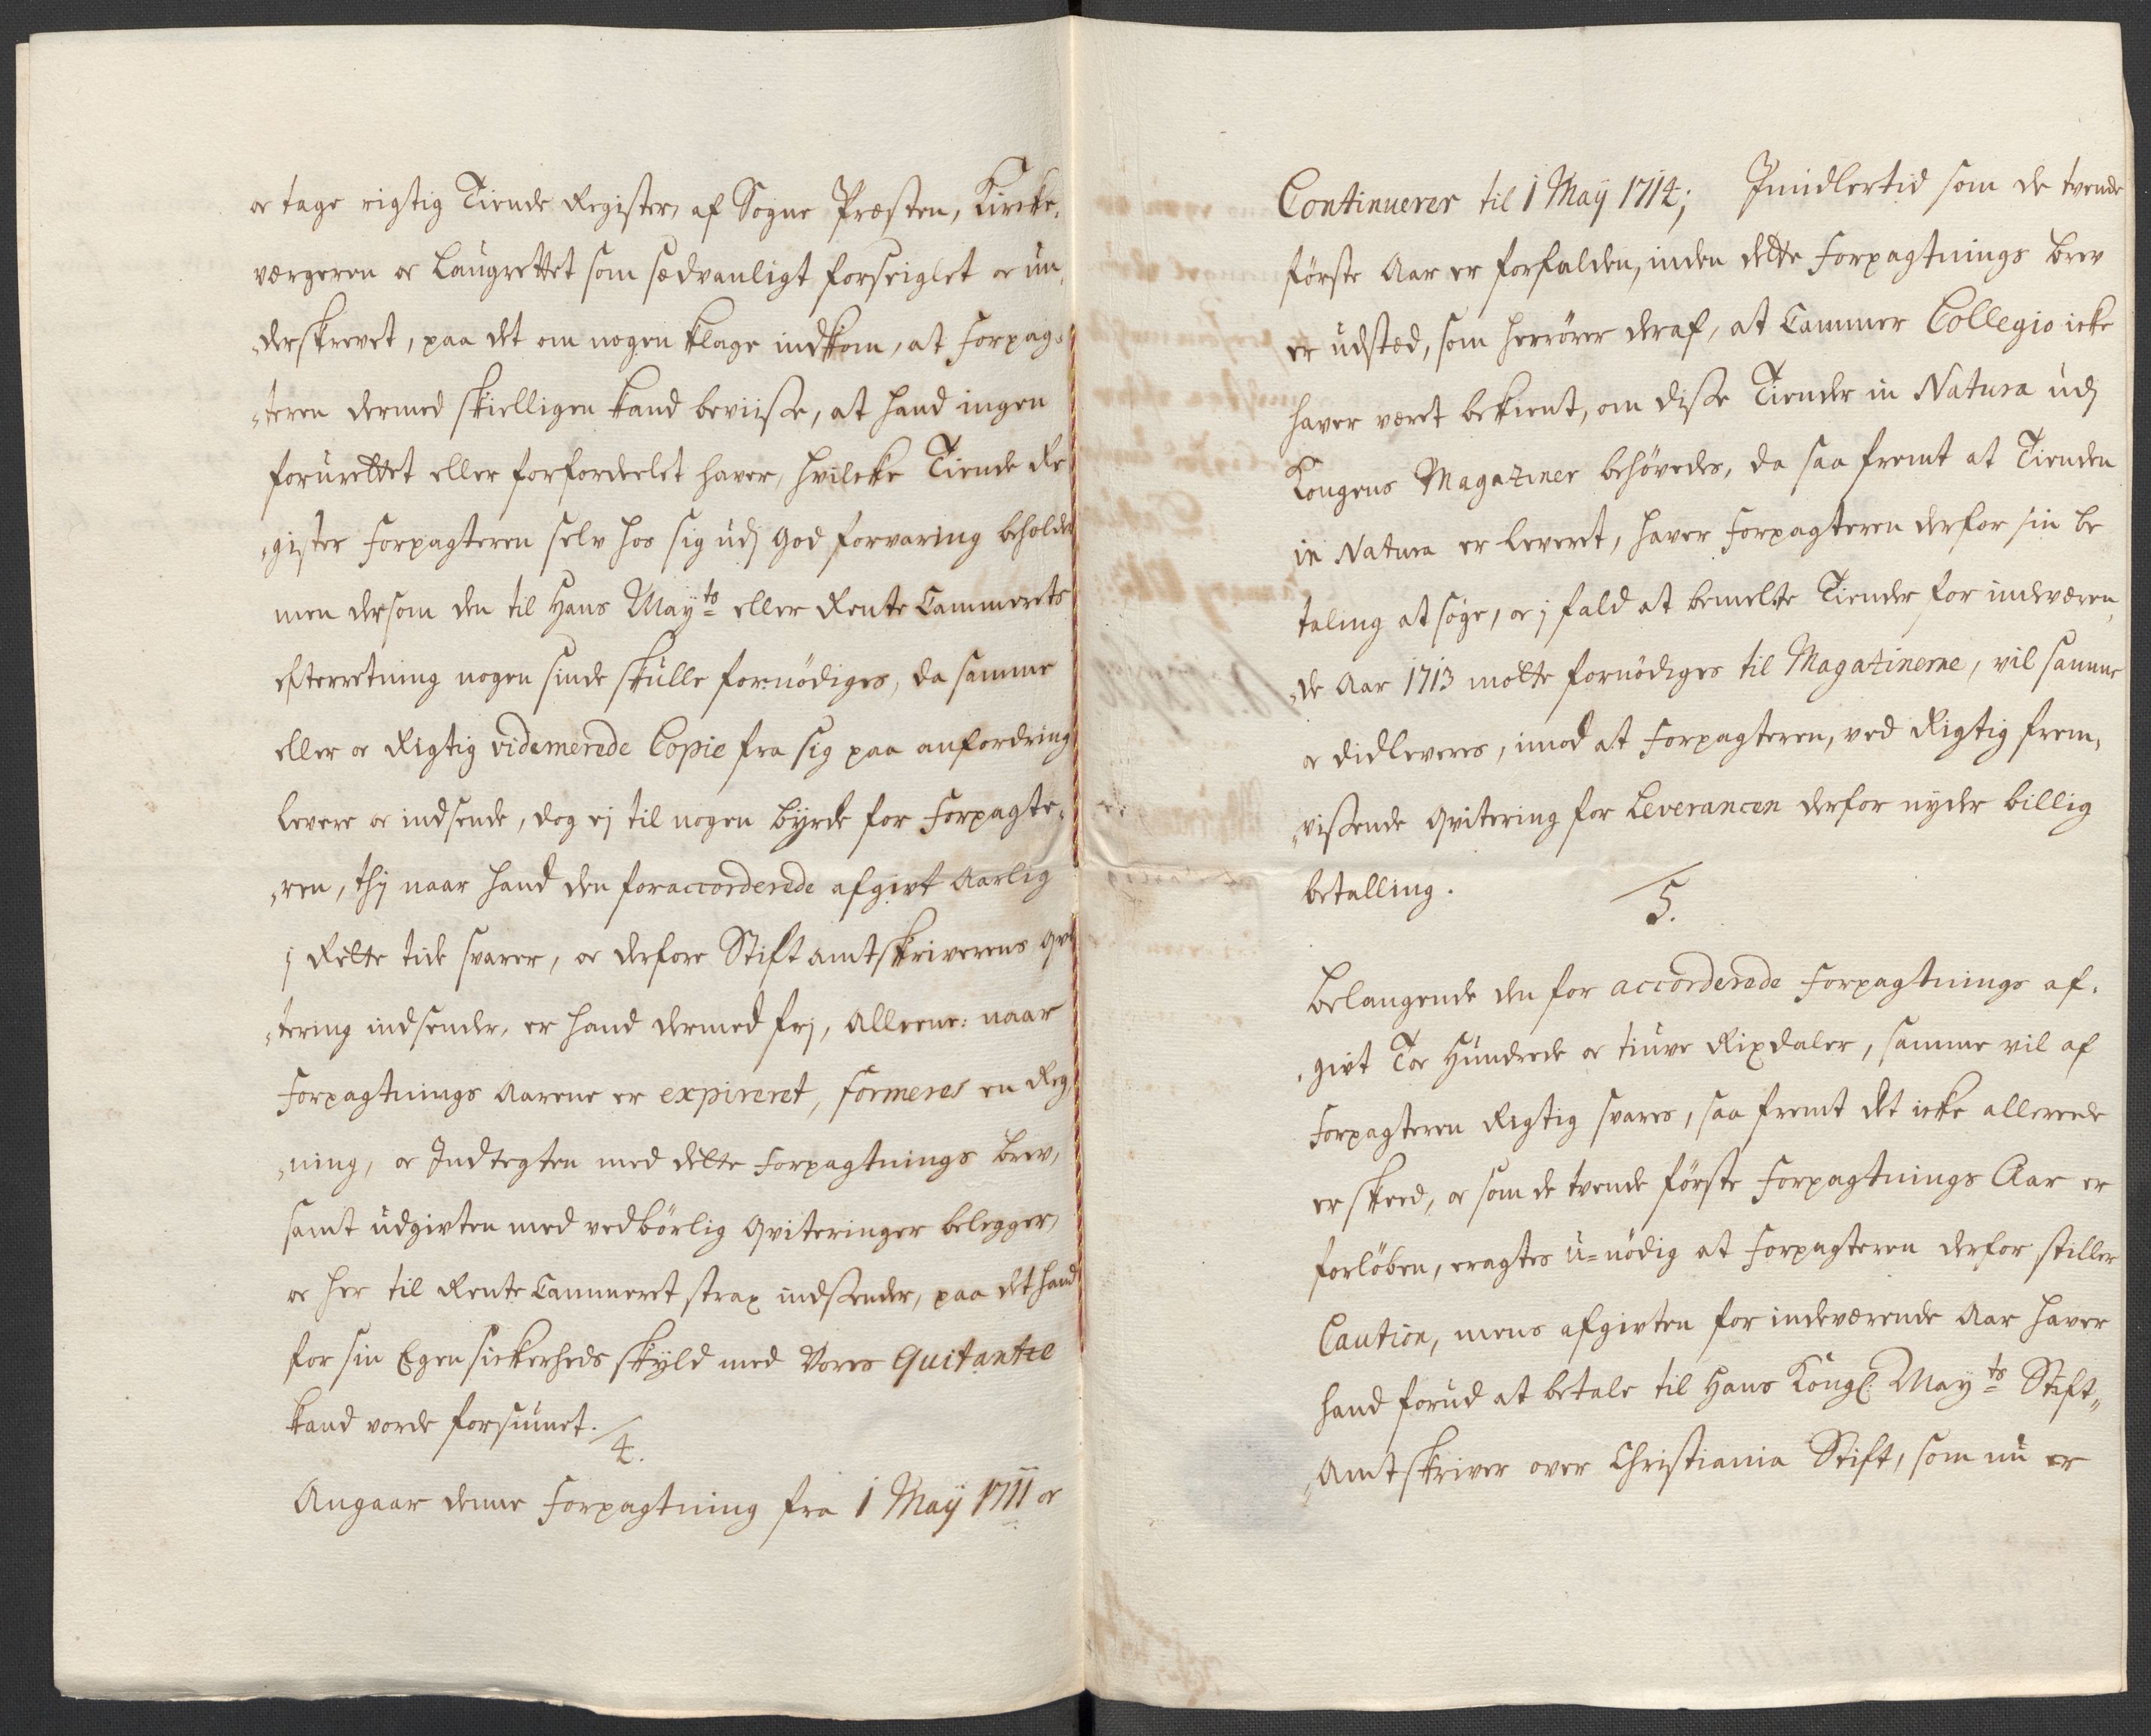 oc tage rigtig Tiende Register, af Sogne Præsten, Kircke,
værgeren oc Laugrettet som sædvanligt forseiglet oc un,
„derskrevet, paa det om nogen klage indkom, at Forpag„
„teren dermed skielligen kand beviiße, at hand ingen
forurettet eller forfordeelet haver, hvilcke Tiende Re
„gister Forpagteren selv hos sig udj god forvaring beholder
men dersom den til Hans Mayts eller Rente Cammerets
efterretning nogen sinde skulle fornödiges, da samme
eller oc Rigtig videmerede Copie fra sig paa anfordring
levere oc indsende, dog ej til nogen byrde for Forpagte„
„ren, thj naar hand den foraccorderede afgivt Aarlig
j Rette tide svarer, oc derfore Stift amtskriverens qvi
„tering indsender, er hand dermed frj, Alleene: naar
Forpagtnings Aarene er expireret, formeres en Reg
„ning, oc Indtegten med dette Forpagtnings brev,
samt udgivten med vedbörlig qviteringer belegger,
oc her til Rente Cammeret strax indsender, paa det hand
for sin Egen sickerheds skyld med Vores Quitantze
kand vorde forsiunet.
4.
Angaar denne Forpagtning fra 1 Maÿ 1711 oc
Continuerer til 1 Maÿ 1714; Imidlertid som de tvende
förste Aar er forfalden, inden dette Forpagtnings brev
er udstæd, som herrörer deraf, at Cammer Collegio icke
haver været bekient, om diße Tiender in Natura udj
Kongens Magaziner behövedes, da saa fremt at Tienden
in Natura er leveret, haver Forpagteren derfor sin be
taling at söge, oc j fald at bemelte Tiender for indeværen„
„de Aar 1713 motte fornödiges til Magazinerne, vil samme
oc didleveres, imod at Forpagteren, ved Rigtig frem„
„vißende qvitering for Leverancen derfor nyder billig
betalling.
5.
Belangende den for accorderede Forpagtnings af„
„givt Toe Hundrede oc tiuve Rixdaler, samme vil af
Forpagteren Rigtig svares, saa fremt det icke allerede
er skeed, oc som de tvende förste Forpagtnings Aar er
forlöben, eragtes u=nödig at Forpagteren derfor stiller
Caution, mens afgivten for indeværende Aar haver
hand forud at betale til Hans Kongl. Mayts Stift„
„Amtskriver over Christiania Stift, som nu er